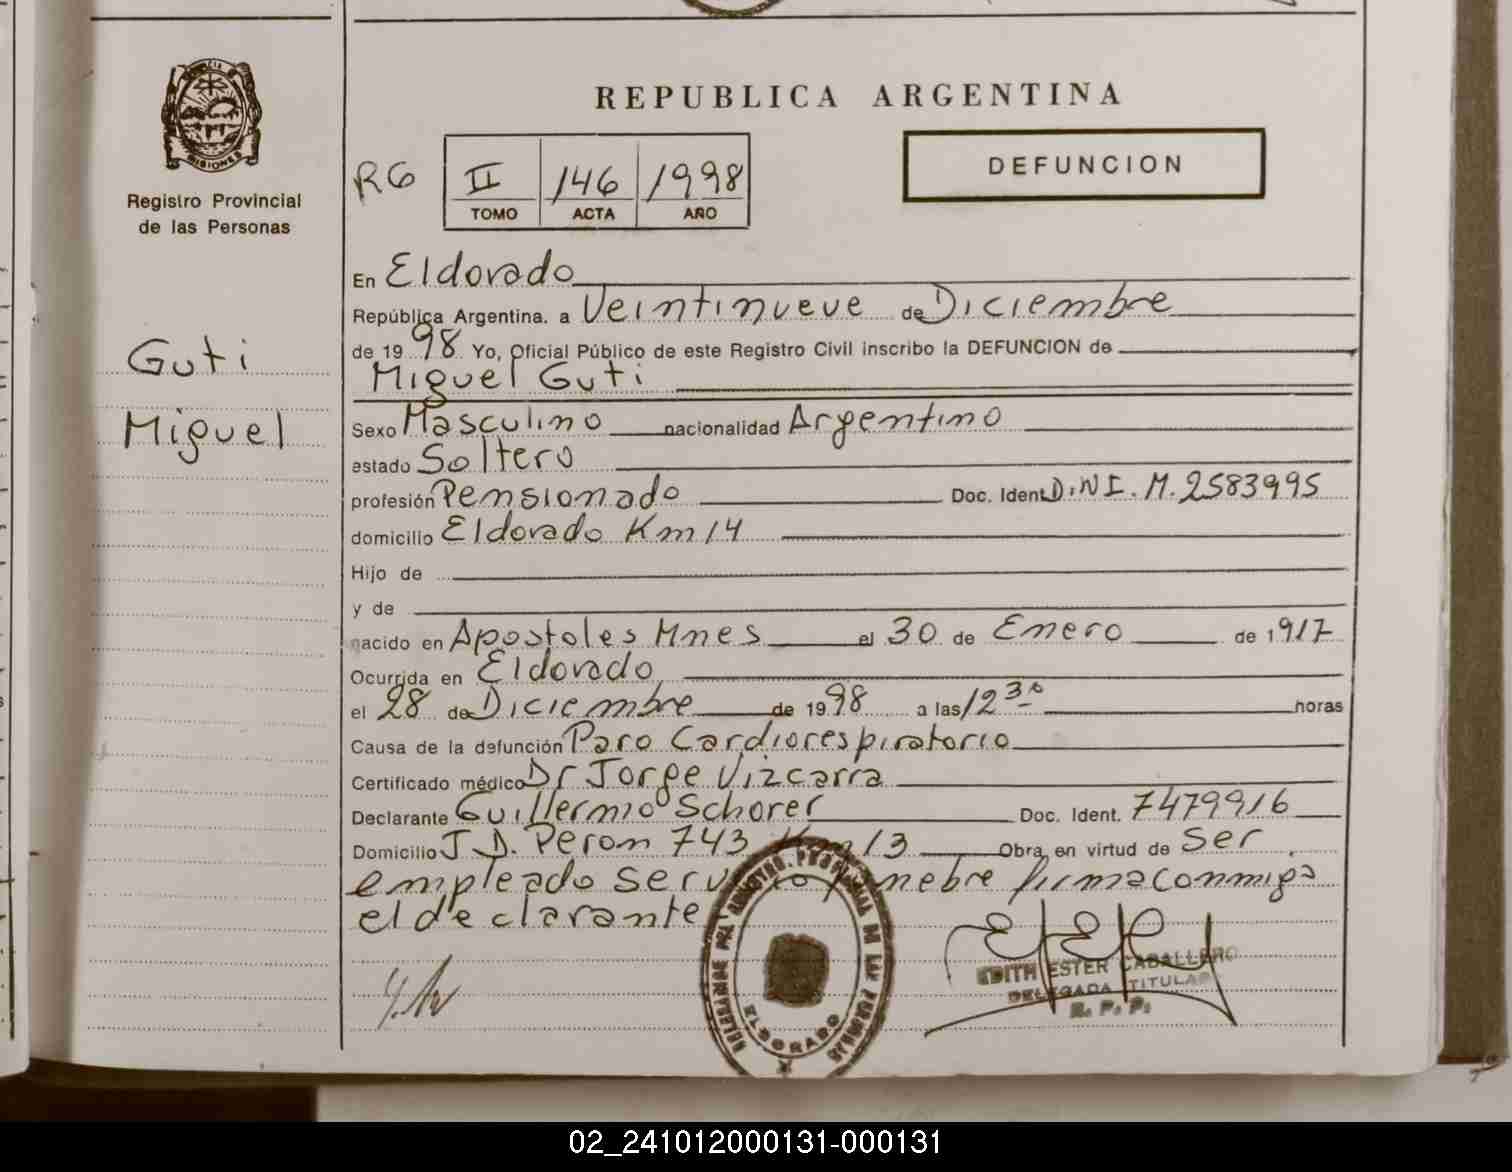 REPUBLICA ARGENTINA
MISIONES
Registro Provincial
de las Personas
RG II 146 1998
TOMO ACTA AÑO
DEFUNCION
Guti
Miguel
En Eldorado
República Argentina. a Veintinueve de Diciembre
de 1998 Yo, Oficial Público de este Registro Civil inscribo la DEFUNCION de
Miguel Guti
Sexo Masculino nacionalidad Argentino
estado Soltero
profesión Pensionado Doc. Ident. D.N.I. M. 2583995
domicilio Eldorado Km 14
Hijo de
y de
nacido en Apostoles Mnes el 30 de Enero de 1917
Ocurrida en Eldorado
el 28 de Diciembre de 1998 a las 12 30 horas
Causa de la defunción Paro Cardiorespiratorio
Certificado médico Dr Jorge Vizcarra
Declarante Guillermo Schorer Doc. Ident. 7479916
Domicilio J D. Peron 743 Km 13 Obra en virtud de Ser
empleado servicio funebre firma conmigo
el declarante
EDITH ESTER CABALLERO
DELEGADA TITULAR
R. P. P.
ELDORADO
02_241012000131-000131